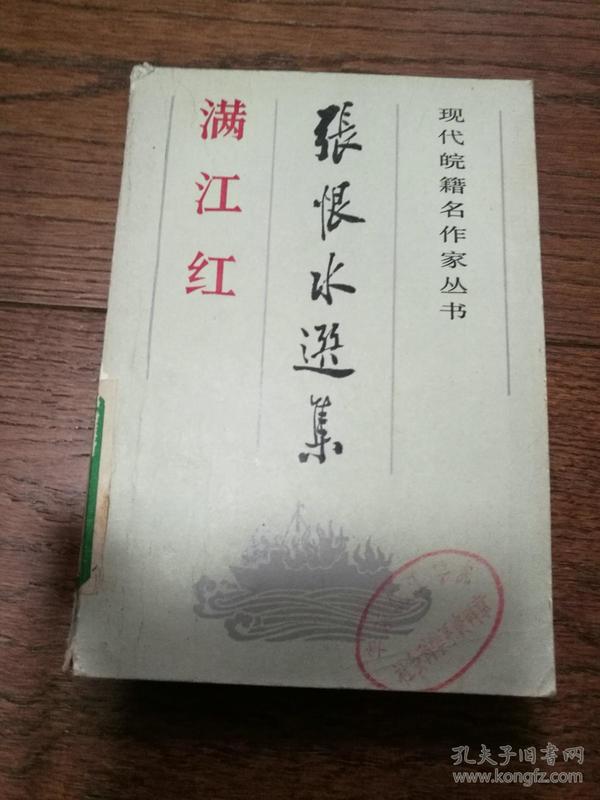 现代皖籍名作家丛书
張恨水選集
满江红
孔夫子旧书网
www.kongfz.com